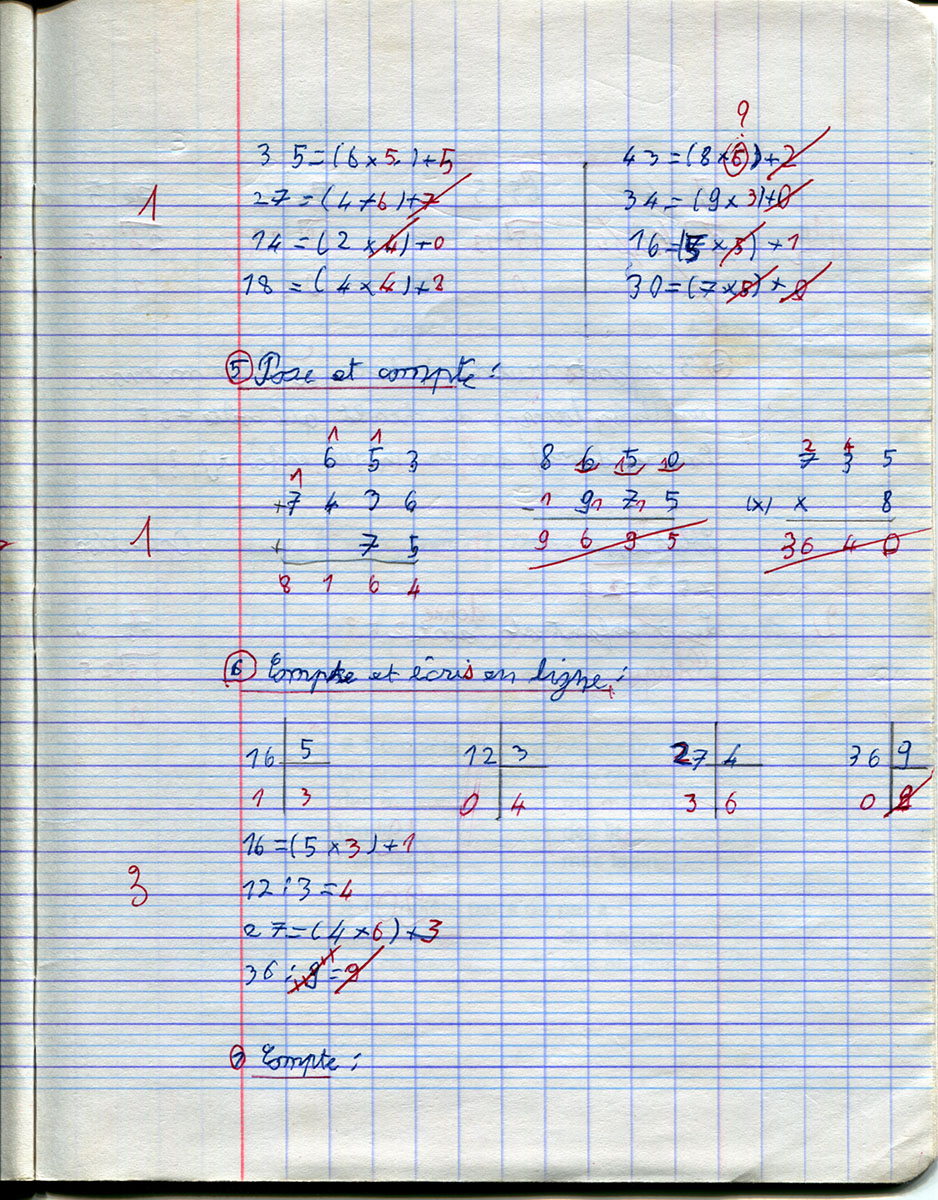 9
35=(6×5)+5 43=(8×6)+2
1
27=(4×6)+7 34=(9×3)+0
14=(2×4)+0 16=(5×5)+1
18=(4×4)+2 30=(7×8)+8
5 Pose et compte :
1 1 2 4
6 5 3 8 6 15 10 7 3 5
1
+7 4 3 6 - 1 9 1 7 1 5 (×) × 8
1
+ 7 5 9 6 9 5 36 4 0
8 1 6 4
6 Compte et écris en ligne :
16 5 12 3 27 4 36 9
1 3 0 4 3 6 0
16=(5×3)+1
3
12:3=4
27=(4×6)+3
36:9=9
7 Compte :